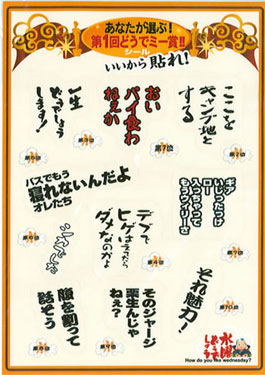 あなたが選ぶ!
第1回どうでミー賞!!
シール
いいから貼れ!
ここを
キャンプ地と
する
おい
パイ食わ
ねぇか
第1位
一生
どうでしょう
します!
ギアいじったっけ
ロー
入っちゃって
もうウィリーさ
デブで
ヒゲはえてたら
ダメなのかよ
バスでもう
寝れないんだよ
オレたち
シカでした
それ魅力!
第10位
そのジャージ
栗生んじゃ
ねぇ?
腹を割って
話そう
水曜
どうでしょう
How do you like wednesday?